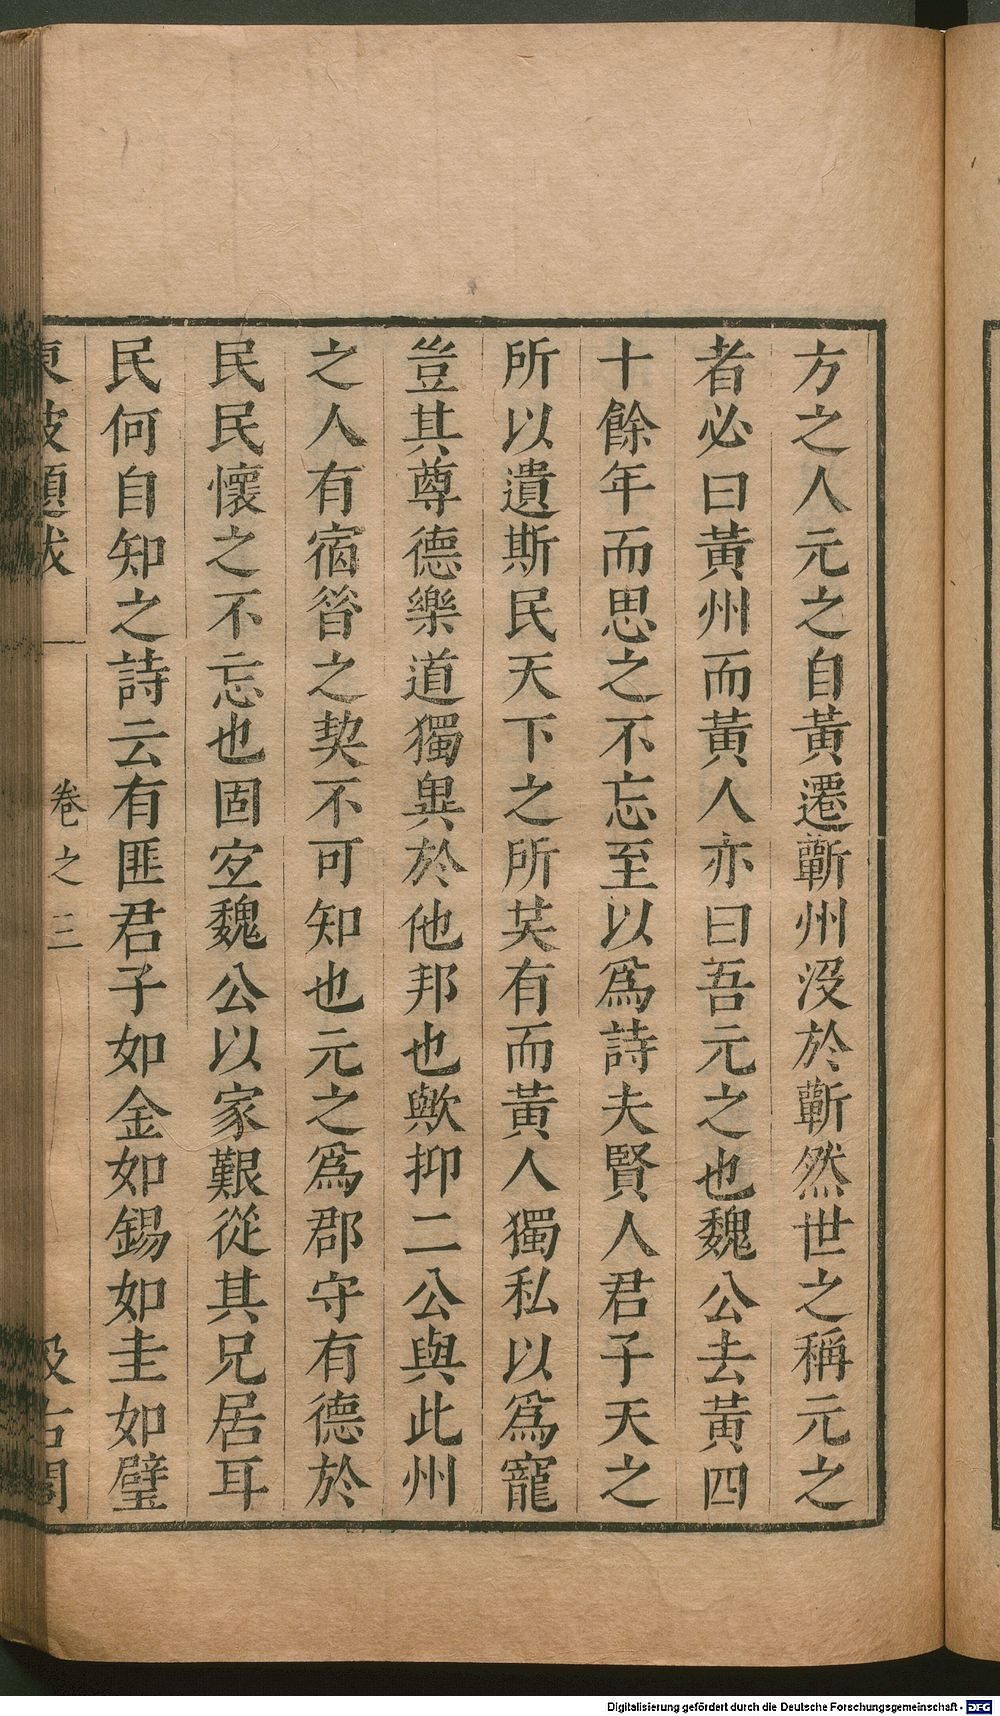 方之人元之自黃遷蘄州沒於蘄然世之稱元之
者必曰黃州而黃人亦曰吾元之也魏公去黃四
十餘年而思之不忘至以爲詩夫賢人君子天之
所以遺斯民天下之所共有而黃人獨私以爲寵
豈其尊德樂道獨異於他邦也歟抑二公與此州
之人有宿昔之契不可知也元之爲郡守有德於
民民懷之不忘也固宜魏公以家艱從其兄居耳
民何自知之詩云有匪君子如金如錫如圭如璧
東坡題跋 卷之三 汲古閣
Digitalisierung gefördert durch die Deutsche Forschungsgemeinschaft - DFG